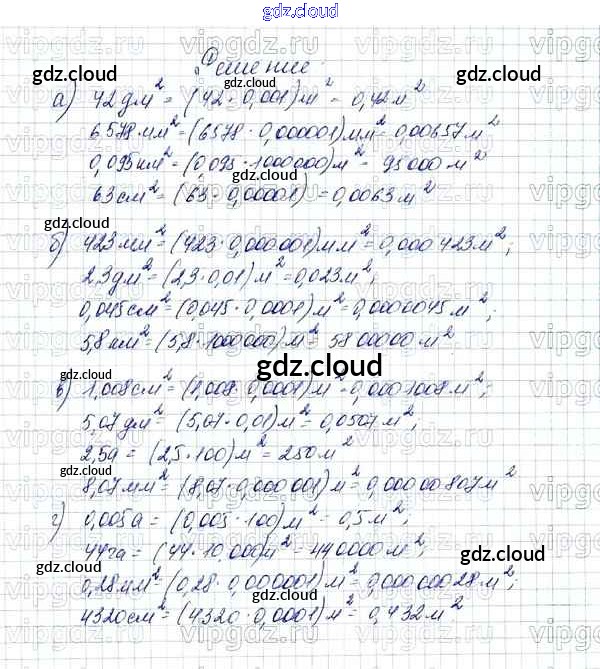 gdz.cloud
Решение
gdz.cloud gdz.cloud
а) 42дм² = (42 · 0,001)м² = 0,42м²
6578мм² = (6578 · 0,000001)мм² = 0,00657м²
0,095км² = (0,095 · 1000000)м² = 95000м²
gdz.cloud
63см² = (63 · 0,00001) = 0,0063м²
gdz.cloud
б) 423мм² = (423 · 0,000001)мм² = 0,000423м²;
2,3дм² = (2,3 · 0,01)м² = 0,023м²;
gdz.cloud
0,045см² = (0,045 · 0,0001)м² = 0,0000045м²;
5,8км² = (5,8 · 1000000)м² = 5800000м²
gdz.cloud
в) 1,008см² = (1,008 · 0,0001)м² = 0,0001008м²;
5,07дм² = (5,07 · 0,01)м² = 0,0507м²;
2,5а = (2,5 · 100)м² = 250м²
gdz.cloud
8,07мм² = (8,07 · 0,000001)м² = 0,00000807м²
г) 0,005а = (0,005 · 100)м² = 0,5м²;
44га = (44 · 10000)м² = 440000м²;
gdz.cloud
0,28мм² = (0,28 · 0,000001)м² = 0,00000028м²;
gdz.cloud gdz.cloud
4320см² = (4320 · 0,0001)м² = 0,432м²